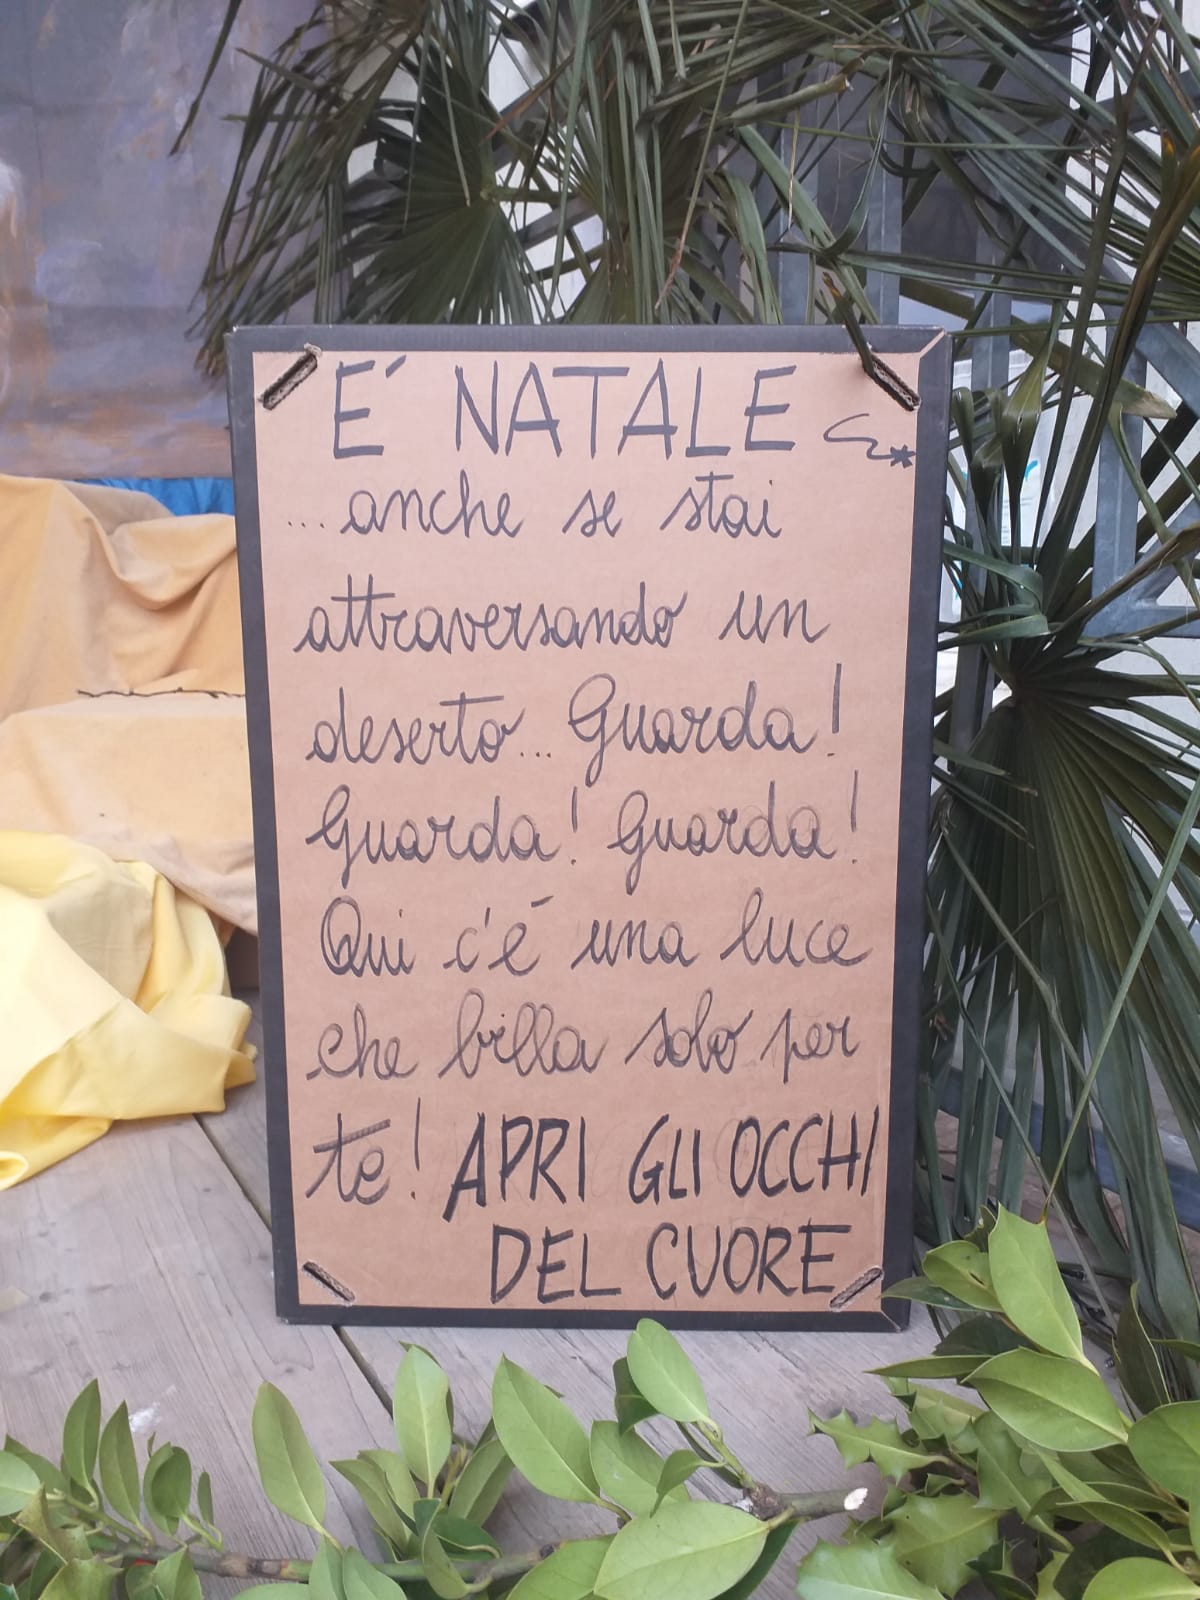 E' NATALE
...anche se stai
attraversando un
deserto... Guarda!
Guarda! Guarda!
Qui c'è una luce
che brilla solo per
te! APRI GLI OCCHI
DEL CUORE